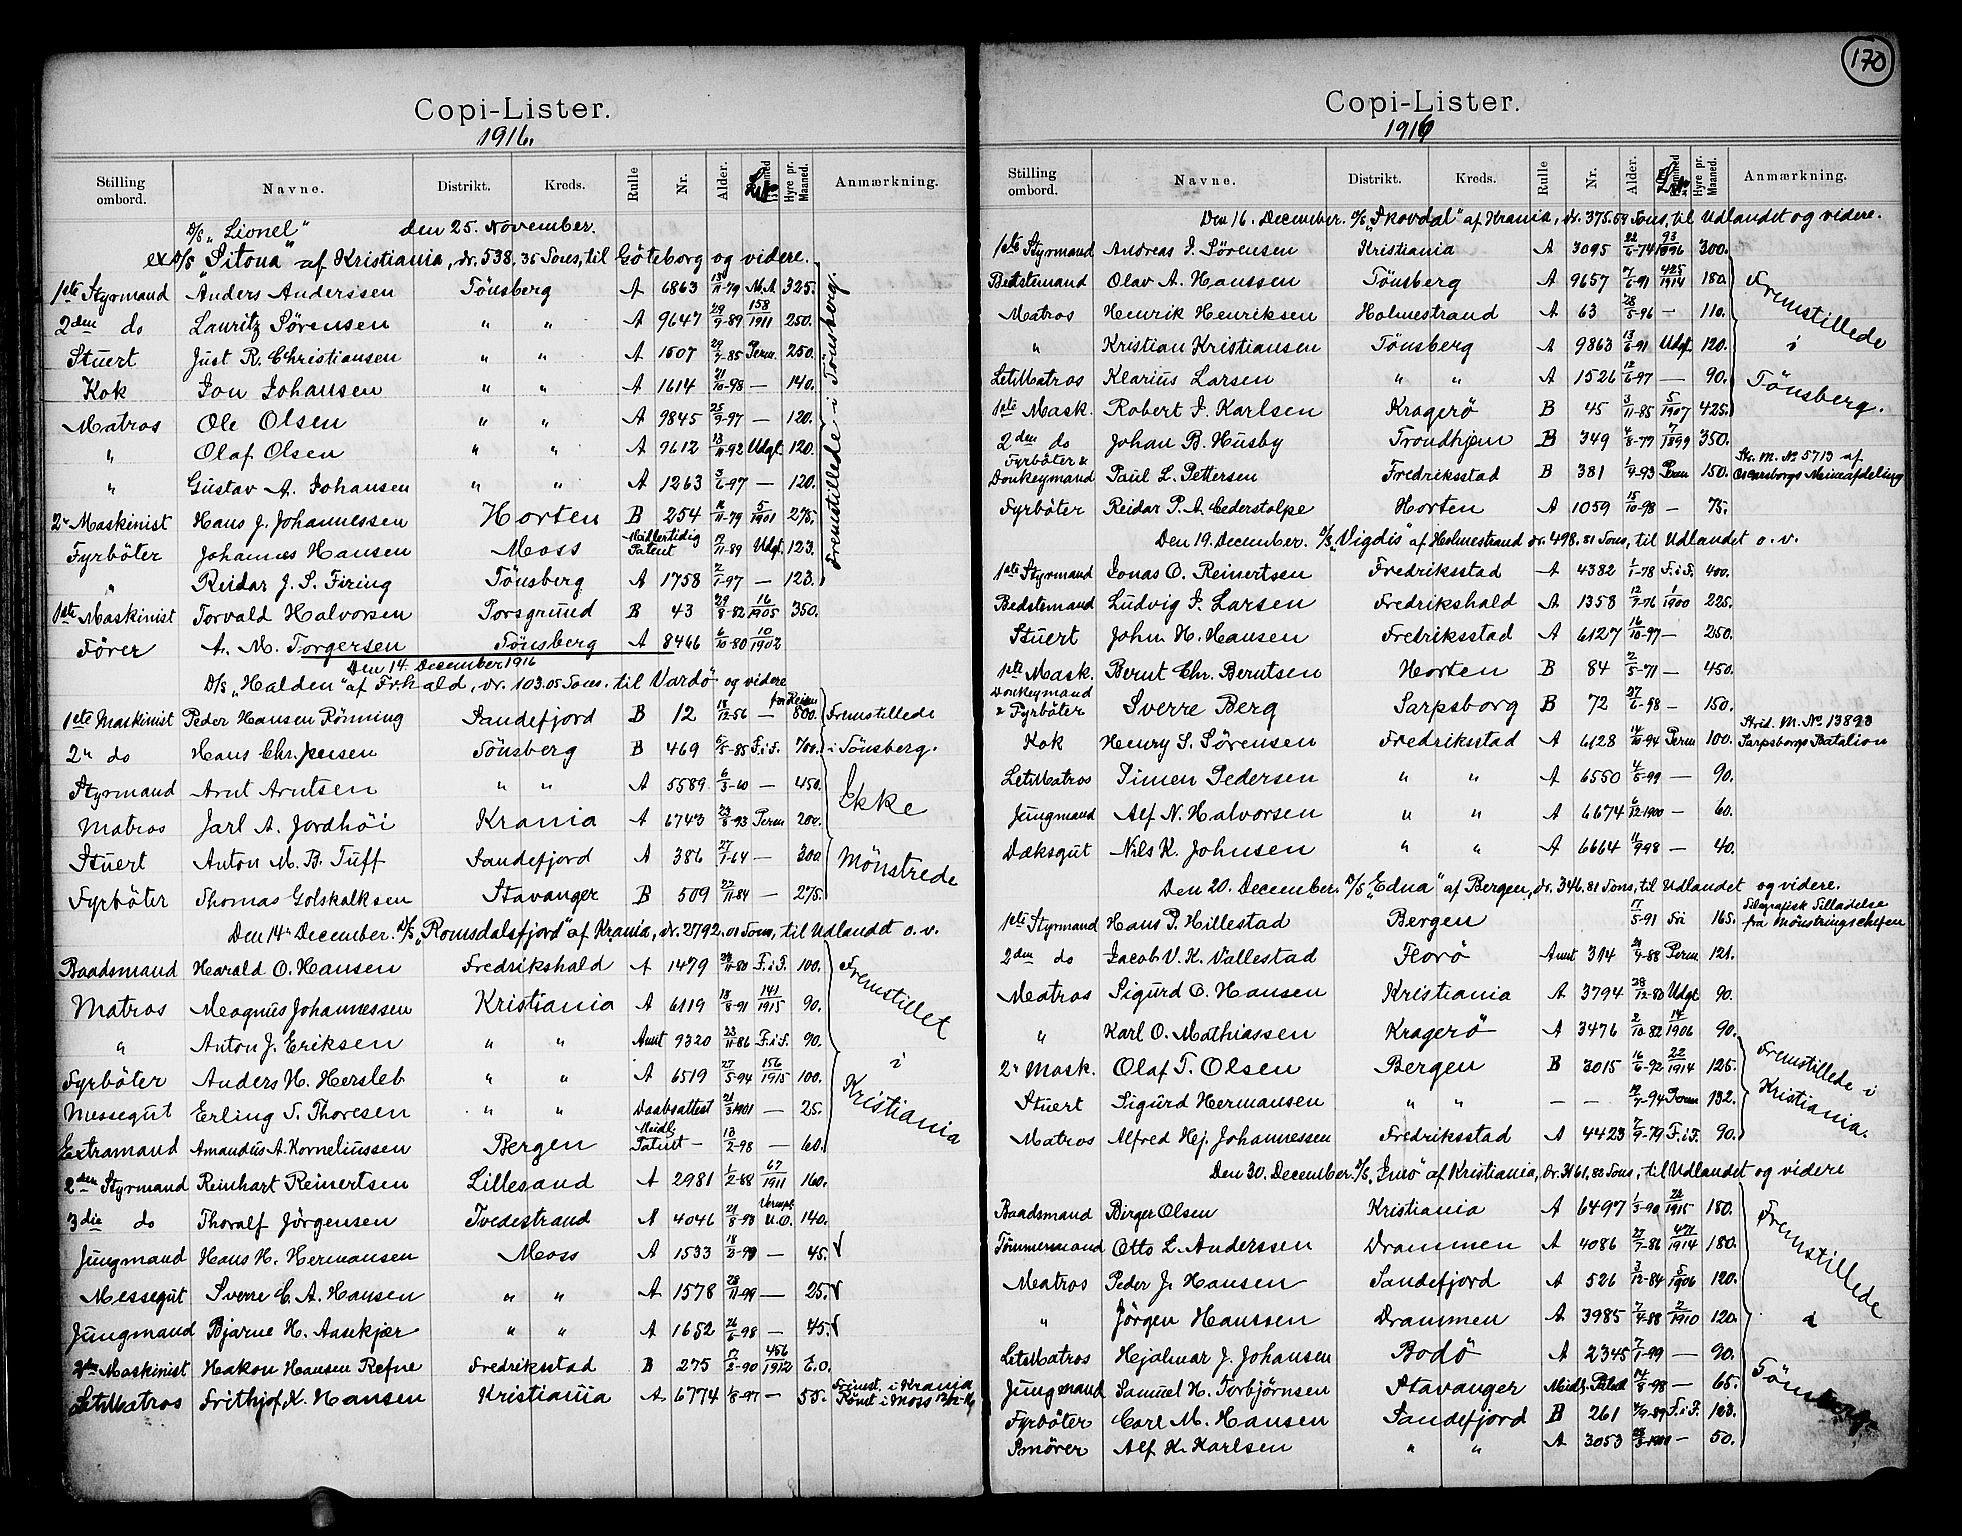 Copi-Lister.
1916.
Stilling ombord. Navne. Distrikt. Kreds. Rulle Nr. Alder. Hyre pr. Maaned. Anmærkning.
D/S „Lionel" den 25. November.
ex D/S „Sitona" af Kristiania, dr. 538,35 Tons, til Göteborg og videre.
1ste Styrmand Anders Anderssen Tönsberg A 6863 13/11-79 M.A 325.
2den do Lauritz Sørensen " " A 9647 29/9-89 158/1911 250.
Stuert Just R. Christiansen " " A 1507 29/7-85 Perm. 250.
Kok Jon Johansen " " A 1614 21/10-98 — 140.
Matros Ole Olsen " " A 9845 25/9-97 — 120.
" Olaf Olsen " " A 9612 13/11-92 Udgt 120.
" Gustav A. Johansen " " A 1263 3/6-97 — 120.
2n Maskinist Hans J. Johannessen Horten B 254 11/11-79 5/1901 275.
Fyrböter Johannes Hansen Moss Midlertidig Patent 7/11-89 Udgt. 123.
" Reidar J. S. Firing Tönsberg A 1758 2/1-97 — 123.
1ste Maskinist Torvald Halvorsen Porsgrund B 43 29/8-82 16/1905 350.
Förer A. M. Torgersen Tönsberg A 8466 6/10-80 10/1902
Fremstillede i Tönsberg.
Den 14. December 1916
D/S „Halden" af Frhald, dr. 103.05 Tons. til Vardö og videre
1ste Maskinist Peder Hansen Rönning Sandefjord B 12 18/12-56 — for Reisen 800. Fremstillede
2n do Hans Chr. Jensen Tönsberg B 469 5/5-85 F.i.F. 700. i Tönsberg.
Styrmand Arnt Arntsen " " A 5589 6/3-60 — 450. Ikke
Matros Jarl A. Jordhöi Krania A 6743 23/8-93 Perm 200.
Stuert Anton M. B. Tuff Sandefjord A 386 27/1-64 — 300 Mönstrede
Fyrböter Thomas Golskalksen Stavanger B 509 27/11-84 — 275.
Den 14n December. D/S „Romsdalsfjord" af Krania, dr. 2792.01 Tons, til Udlandet o. v.
Baadsmand Harald O. Hansen Fredrikshald A 1479 24/11-80 F.i.F. 100. Fremstillet
Matros Magnus Johannessen Kristiania A 6119 18/8-91 141/1915 90.
" Anton J. Eriksen " " Amt 9320 23/11-86 F.i.F. 90. i
Fyrböter Anders H. Hersleb " " A 6519 27/5-94 156/1915 100. Kristiania
Messegut Erling S. Thoresen " " Daabsattest 21/3 1901 — 25.
Extramand Amandus A. Korneliussen Bergen Midl. Patent — 18/2-98 — 60.
2den Styrmand Reinhart Reinertsen Lillesand A 2981 1/2-88 67/1911 160.
3die do Thoralf Jörgensen Tvedestrand A 4046 21/8-98 Vernepl. U.O. 140.
Jungmand Hans H. Hermansen Moss A 1533 18/2-99 — 45.
Messegut Sverre C. A. Hansen " " A 1578 28/11-99 — 25.
Jungmand Bjarne H. Aasekjær " " A 1652 26/6-98 — 45.
2den Maskinist Hakon Hansen Refne Fredriksstad B 275 17/2-90 456/1912 E.O.
LetMatros Frithjof K. Hansen Kristiania A 6774 1/8-97 — 55. Fremst. i Krania Mönst i Moss
170
Copi-Lister.
1916
Stilling ombord. Navne. Distrikt. Kreds. Rulle Nr. Alder. Hyre pr. Maaned. Anmærkning.
Den 16. December. D/S „Skovdal" af Krania, dr. 375.59 Tons, til Udlandet og videre.
1ste Styrmand Andreas J. Sörensen Kristiania A 3095 22/6-74 93/1896 300.
Bedstemand Olav A. Hanssen Tönsberg A 9657 7/6-91 425/1914 180. Fremstillede
Matros Henrik Henriksen Holmestrand A 63 28/5-96 — 110.
" Kristian Kristiansen Tönsberg A 9863 13/6-91 Udgt. 120. i
LetMatros Klarius Larsen " " A 1526 12/6-97 — 90. Tönsberg.
1ste Mask. Robert J. Karlsen Kragerö B 45 3/11-85 5/1907 425.
2den do Johan B. Husby Trondhjem B 349 4/8-79 7/1899 350.
Fyrböter & Donkeymand Paul L. Pettersen Fredriksstad B 381 1/9-93 Perm 150. Str. M. No 5713 af Oscarsborgs Mineafdeling
Fyrböter Reidar P. A. Cederstolpe Horten A 1059 15/10-98 — 75.
Den 19. December. D/S „Vigdis" af Holmestrand dr. 498.81 Tons, til Udlandet o. v.
1ste Styrmand Jonas O. Reinertsen Fredriksstad A 4382 1/1-78 F.i.F. 400.
Bedstemand Ludvig J. Larsen Fredrikshald A 1358 12/9-76 1/1900 225.
Stuert John H. Hansen Fredriksstad A 6127 16/10-97 — 250.
1ste Mask. Bernt Chr. Berntsen Horten B 84 2/5-71 — 450.
Donkeymand & Fyrböter Sverre Berg Sarpsborg B 72 27/6-98 — 150.
Kok Henry S. Sörensen Fredriksstad A 6128 14/10-94 Perm 100. Strid. M. No 13893 Sarpsborgs Batalion
LetMatros Simen Pedersen " " A 6550 4/5-99 — 90.
Jungmand Alf N. Halvorsen " " A 6674 6/12-1900 — 60.
Dæksgut Nils K. Johnsen " " A 6664 11/9-98 — 40.
Den 20. December. D/S „Edna" af Bergen, dr. 346.81 Tons, til Udlandet og videre.
1ste Styrmand Hans P. Hillestad Bergen 17/5-91 Fri 165. Telegrafisk Tilladelse fra Mönstringschefen
2den do Jacob V. K. Vallestad Florö Amt 314 21/9-88 Perm. 121.
Matros Sigurd O. Hansen Kristiania A 3794 28/12-80 Udgt 90.
" Karl O. Mathiassen Kragerö A 3476 2/10-82 14/1906 90.
2n Mask. Olaf T. Olsen Bergen B 3015 16/6-92 22/1914 125. Fremstillede i
Stuert Sigurd Hermansen " " — — 12/7-94 Perm 132. Kristiania.
Matros Alfred Hej. Johannessen Fredriksstad A 4423 7/9-79 F.i.F. 90.
Den 30. December. D/S „Imo" af Kristiania, dr. 3161,83 Tons, til Udlandet og videre
Baadsmand Birger Olsen Kristiania A 6497 1/3-90 28/1915 180.
Tömmermand Otto L. Anderssen Drammen A 4086 27/7-86 471/1914 180. Fremstillede
Matros Peder J. Hansen Sandefjord A 526 3/12-84 5/1906 120.
" Jörgen Hanssen Drammen A 3985 7/4-88 2/1910 120. i
LetMatros Hjalmar J. Johansen Bodö A 2345 7/1-99 — 90.
Jungmand Samuel H. Torbjörnsen Stavanger Midl. Patent 14/8-98 — 65. Tönsberg.
Fyrböter Carl M. Hansen Sandefjord B 261 4/9-89 F.i.F. 123.
Smörer Alf K. Karlsen " " A 3053 — 50.